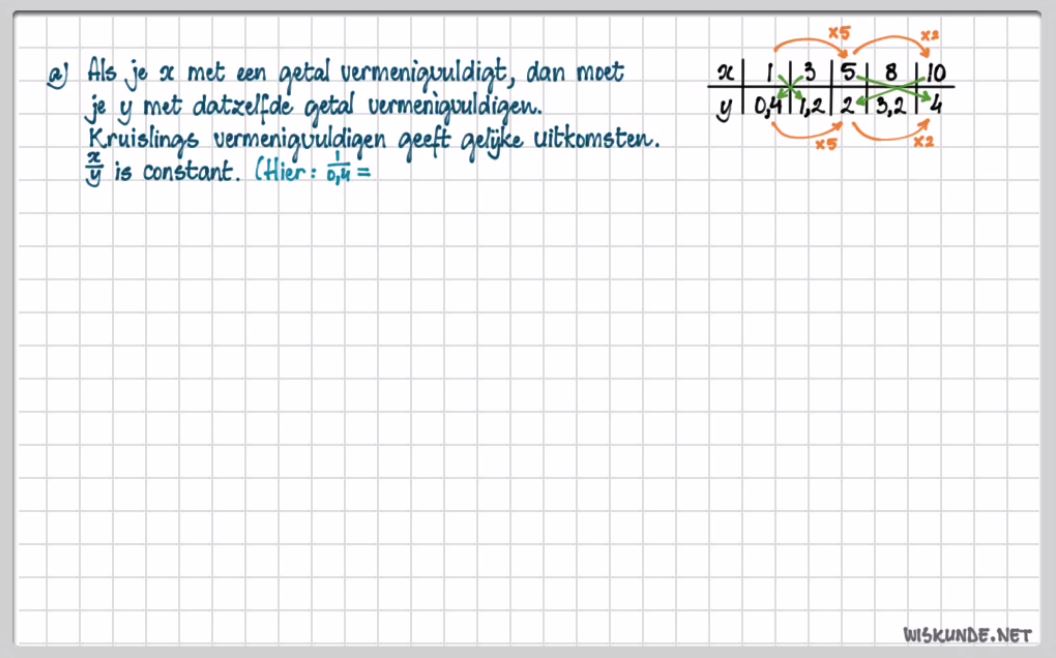 x5 x2
a) Als je x met een getal vermenigvuldigt, dan moet
je y met datzelfde getal vermenigvuldigen.
Kruislings vermenigvuldigen geeft gelijke uitkomsten.
x/y is constant. (Hier: 1/0,4 =
x | 1 | 3 | 5 | 8 | 10
y | 0,4 | 1,2 | 2 | 3,2 | 4
x5 x2
WISKUNDE.NET